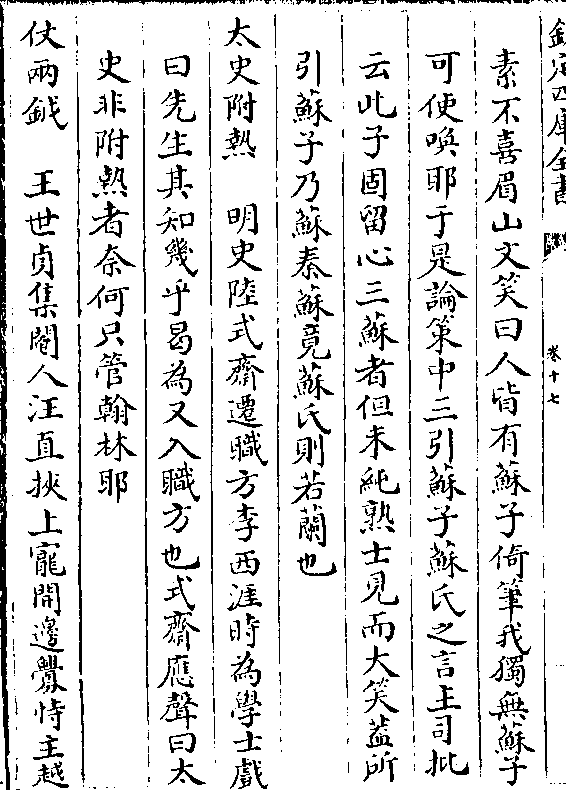 欽定四庫全書
卷十七
素不喜眉山文笑曰人皆有蘇子倚筆我獨無蘇子
可使喚耶于是論策中三引蘇子蘇氏之言主司批
云此子固留心三蘇者但未純熟士見而大笑葢所
引蘇子乃蘇秦蘇竟蘇氏則若蘭也
太史附熱　明史陸式齋遷職方李西涯時為學士戲
曰先生其知幾乎曷為又入職方也式齋應聲曰太
史非附熱者奈何只管翰林耶
仗兩鉞　王世貞集閹人汪直挾上寵開邊釁恃主越